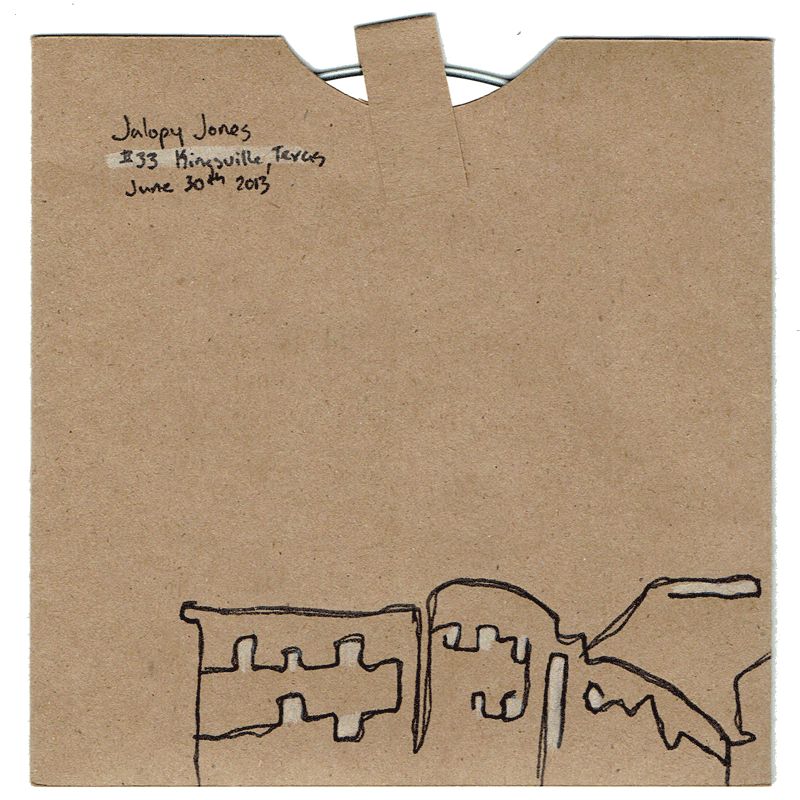 Jalopy Jones
#33 Kingsville, Texas
June 30th 2013